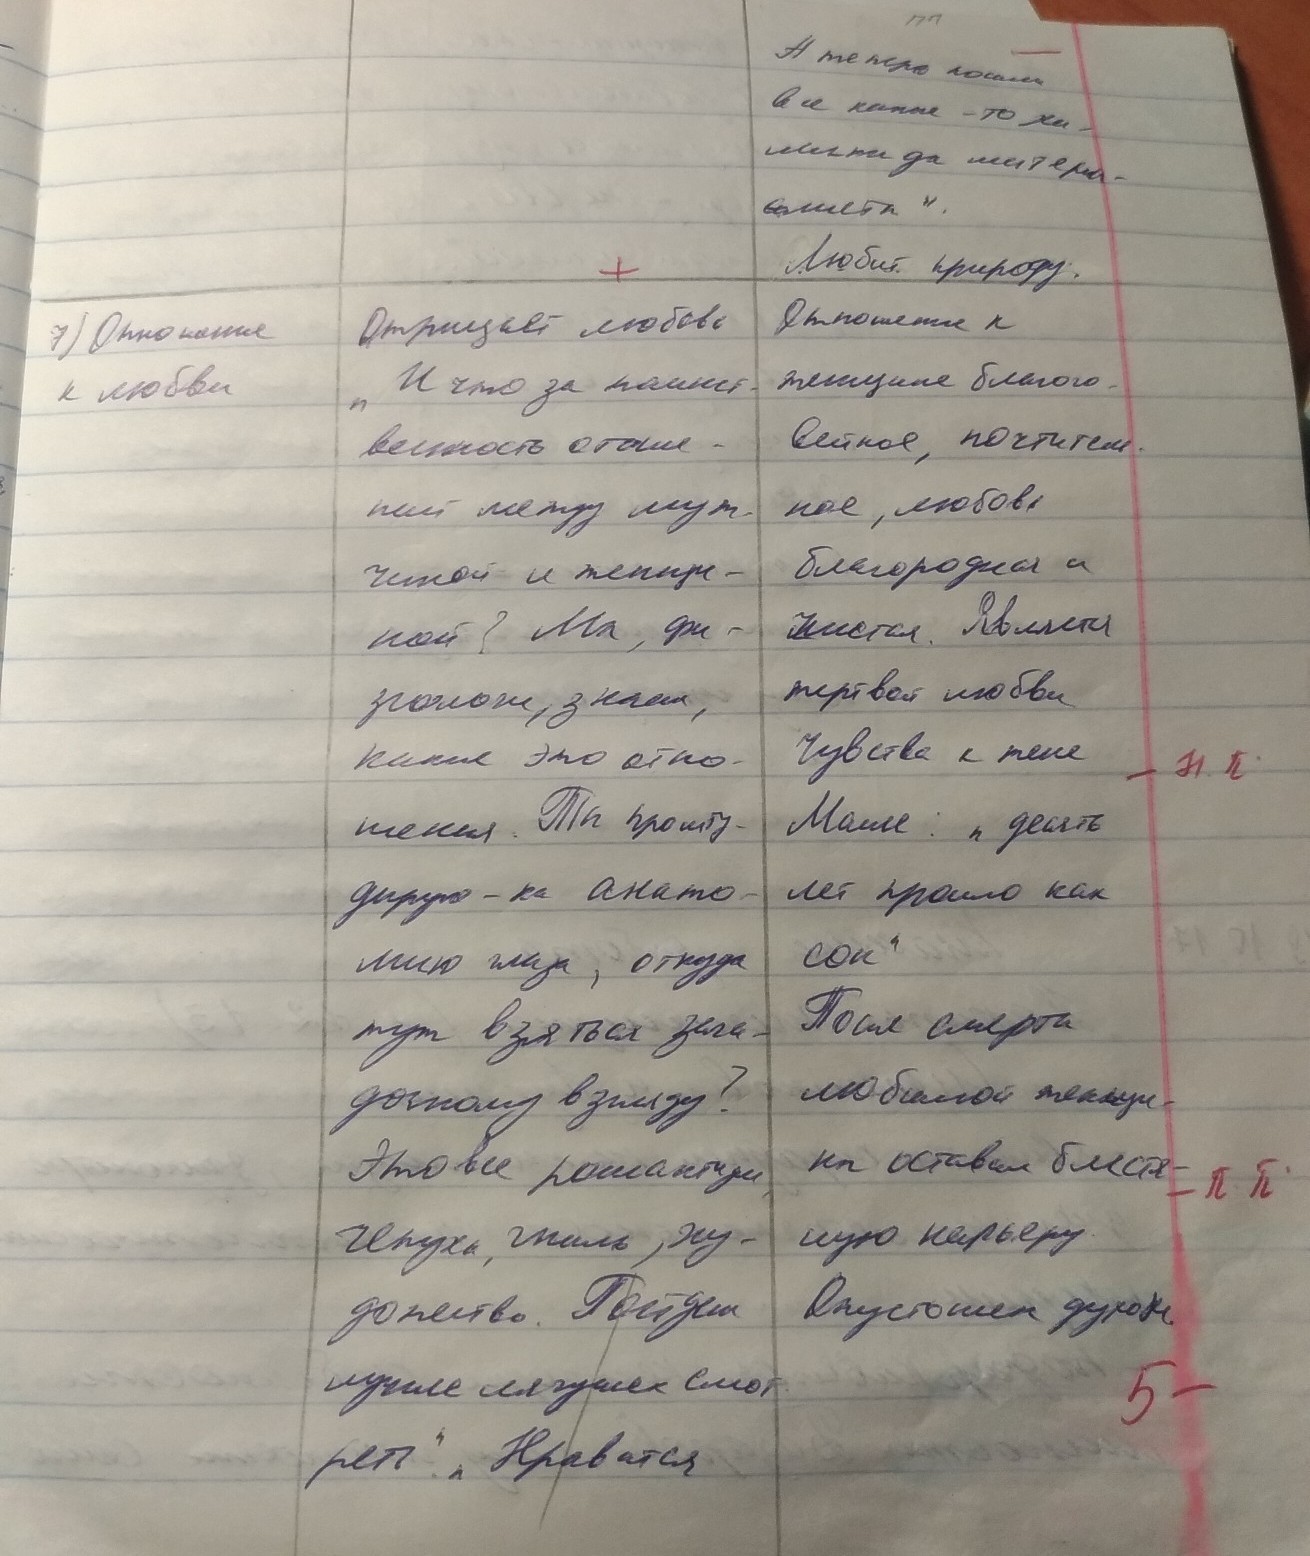 пп
А теперь пошли
все какие-то хи-
мики да матери-
алисты".
Любит природу.
+
7) Отношение
к любви
Отрицает любовь
„И что за таинст-
венность отноше-
ний между муж-
чиной и женщи-
ной? Мы, фи-
зиологи, знаем,
какие это отно-
шения. Ты прошту-
дируй-ка анато-
мию глаза, откуда
тут взяться зага-
дочному взгляду?
Это все романтизм,
чепуха, гниль, ху-
дожество. Пойдем
лучше лягушек смот
реть". „Нравится
Отношение к
женщине благого-
вейное, почтитель-
ное, любовь
благородная и
чистая. Является
жертвой любви
Чувства к жене
Маше: „десять
лет прошло как
сон"
После смерти
любимой женщи-
ны оставил блестя-
щую карьеру.
Опустошен духовн.
п.
п п
5-